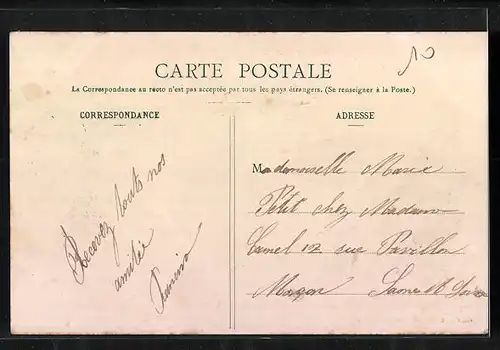 10
CARTE POSTALE
La Correspondance au recto n'est pas acceptée par tous les pays étrangers. (Se renseigner à la Poste.)
CORRESPONDANCE
Recevez touts nos
amitiée
ADRESSE
Mademoiselle Marie
Petit chez Madame
12 rue Pavillon
Macon Saone et Loire